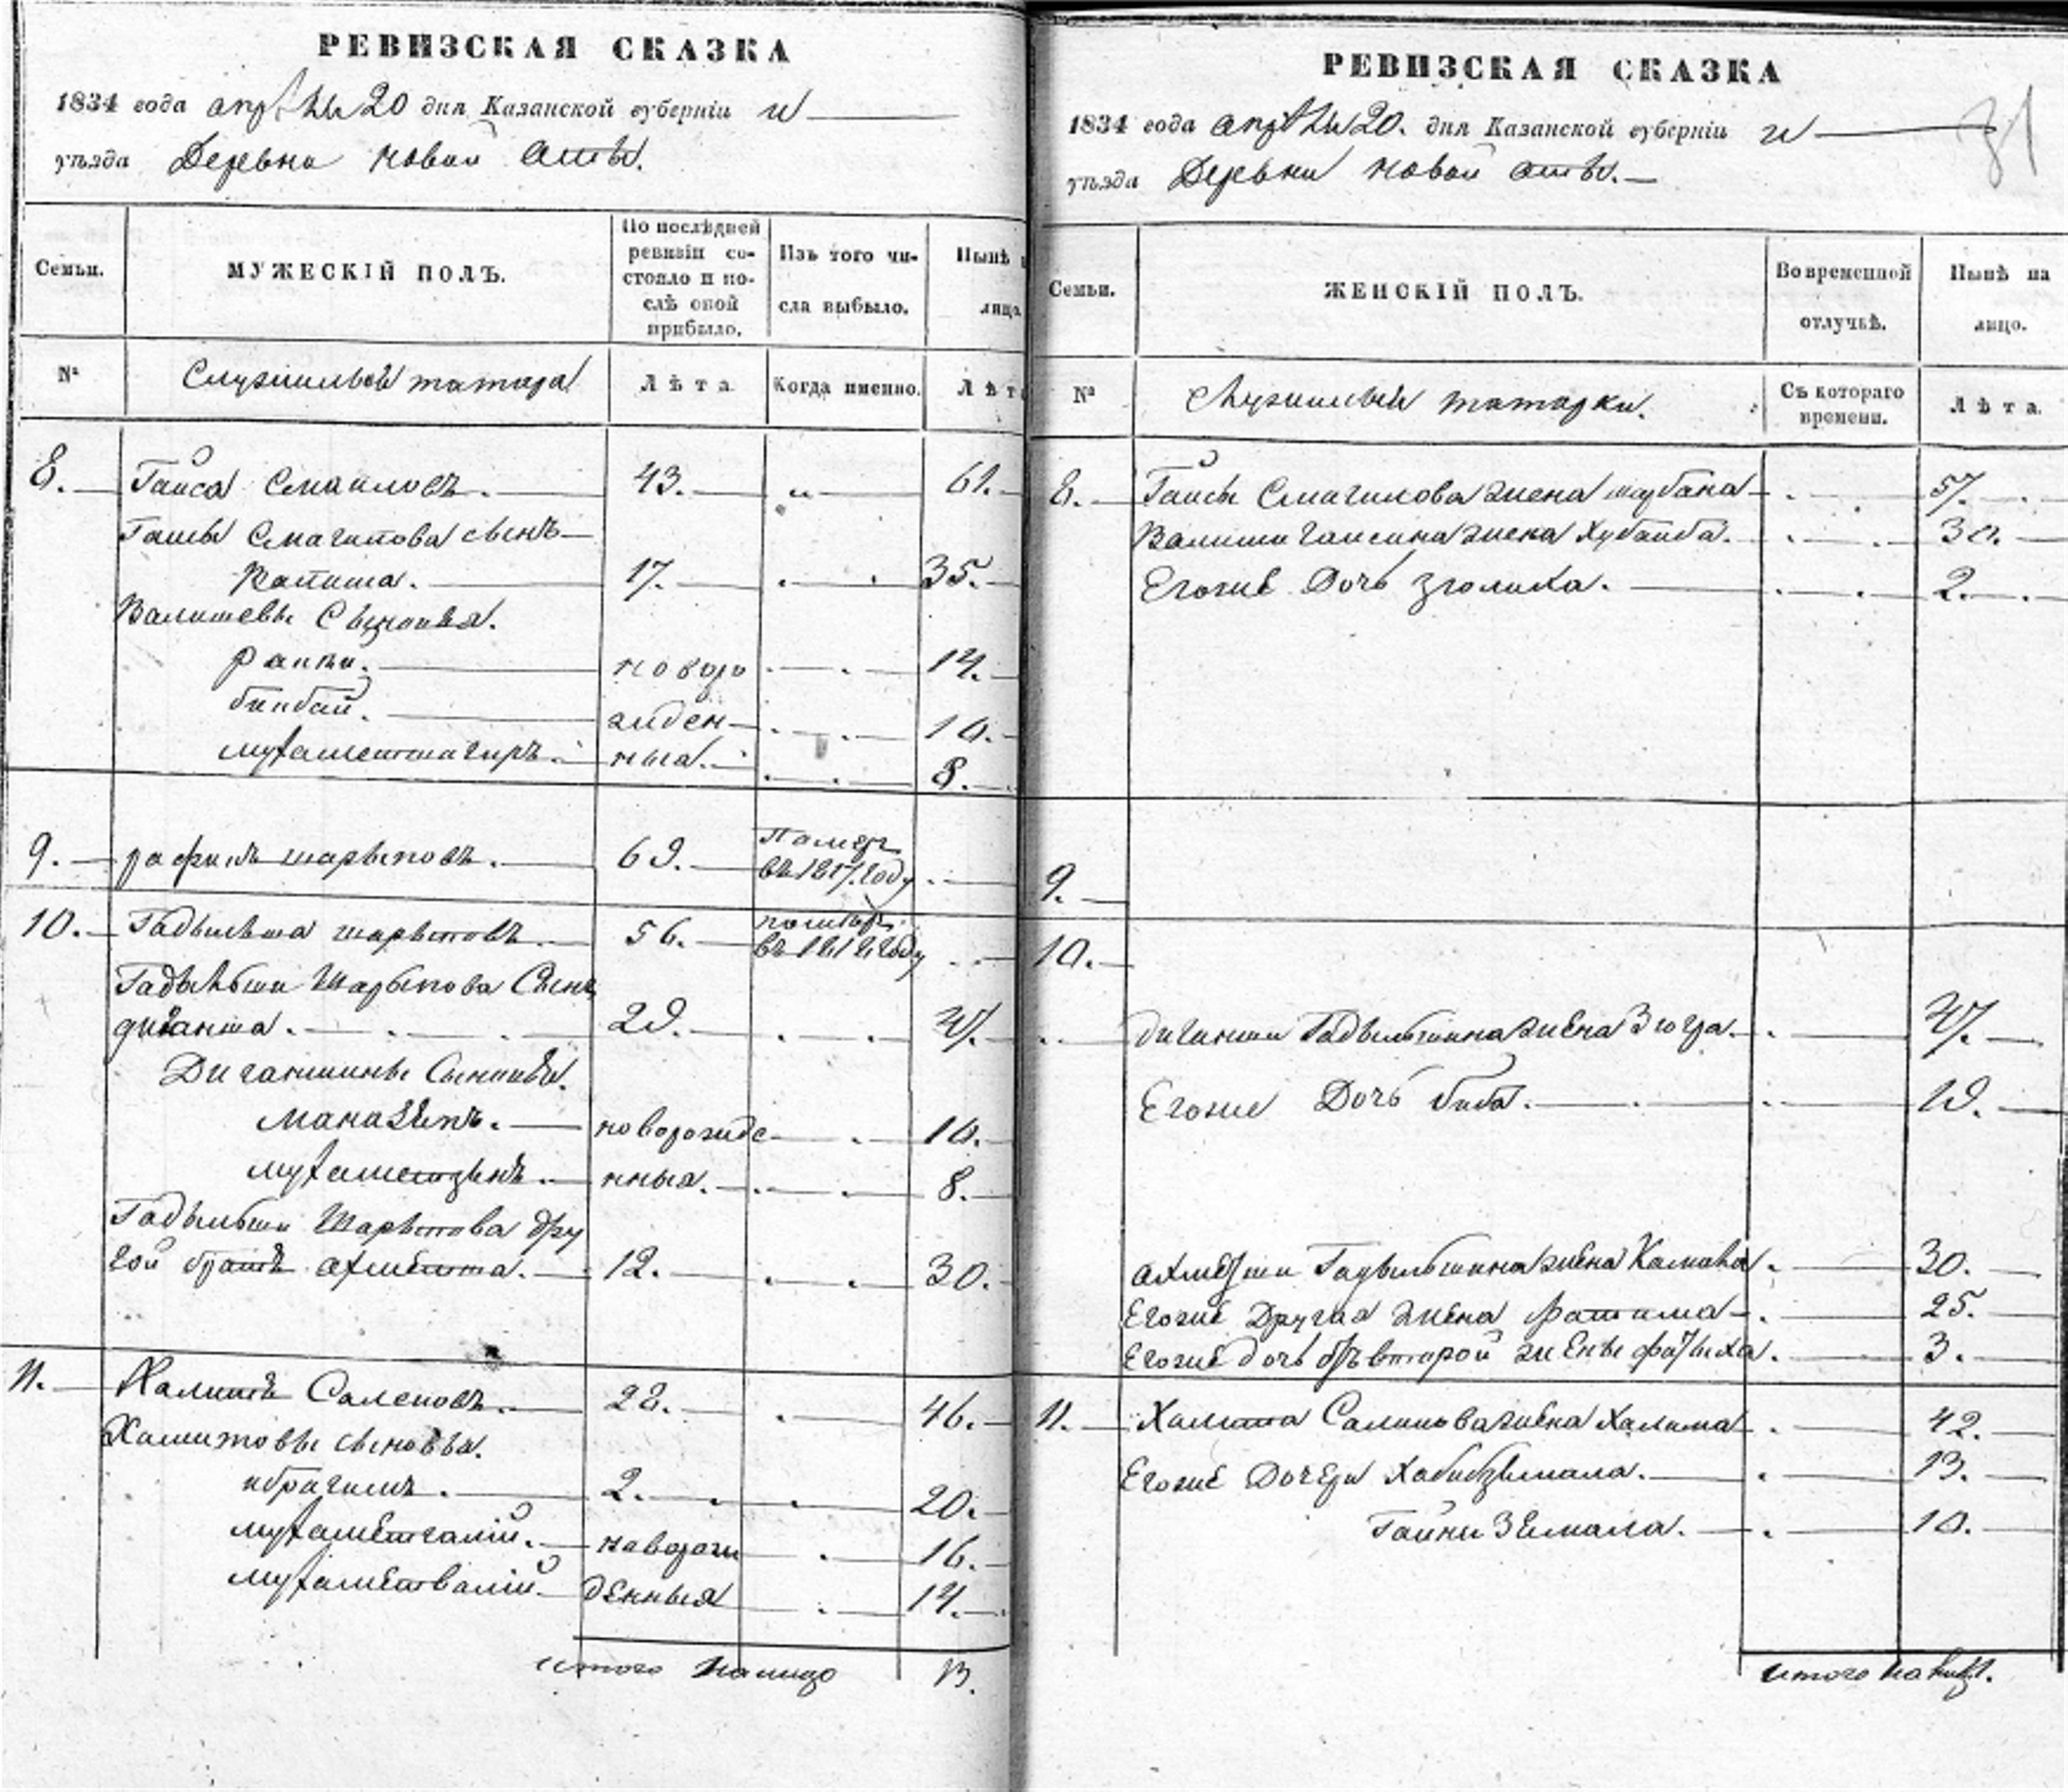 РЕВИЗСКАЯ СКАЗКА
1834 года апреля 20 дня Казанской губерніи и
уѣзда Деревни новой
Семьи.
МУЖЕСКІЙ ПОЛЪ.
По послѣдней ревизіи состояло и послѣ оной прибыло.
Изъ того числа выбыло.
Нынѣ
лицо.
№
Служилыя татара
Лѣта
Когда именно.
Лѣт
8. Гайса Смаиловъ. 43. 61.
Гайсы Смагилова сынъ
Валиша. 17. 35.
Валишевы Сыновья.
новоро 14.
бикбай. жден 10.
мухаметшагиръ. ныя. 8.
9. рафикъ шарыповъ. 69. Померъ
въ 1817. году
10. Гадыльша шарыповъ. 56. померъ
въ году
Гадыльши Шарыпова Сынъ
диганша. 29. 47.
Диганшины Сыновья.
новорожде 10.
мухаметзянъ. нныя. 8.
Гадыльши Шарыпова дру
гой братъ ахметша. 12. 30.
11. Халитъ Салеповъ. 28. 46.
Халитовы сыновья.
ибрагимъ. 2. 20.
мухаметгалiй. новорож 16.
мухаметвалiй. денныя 14.
итого налицо 13.
РЕВИЗСКАЯ СКАЗКА
31
1834 года апреля 20. дня Казанской губерніи и
уѣзда Деревни новой
Семьи.
ЖЕНСКІЙ ПОЛЪ.
Во временной отлучкѣ.
Нынѣ на лицо.
№
Служилыя татарки.
Съ котораго времени.
Лѣта.
8. Гайсы Смагилова жена 57.
Валиши Гайсина жена Хубайба. 30.
Егоже Дочь 2.
9.
10.
диганши Гадыльшина жена Зюгра. 47.
Егоже Дочь биба. 19.
ахметши Гадыльшина жена Камава. 30.
Егоже Другая жена Фатима 25.
Егоже дочь отъ второй жены фатыха. 3.
11. Халита Салипова жена Халима 42.
Егоже Дочери Хабибземала. 13.
Гайни Земала. 10.
итого